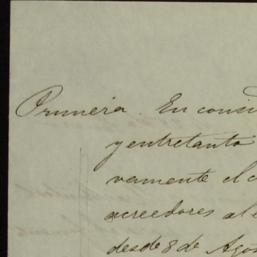 Primera En consi
y entretanto
vamente el c
acreedores al
desde 8 de Ago